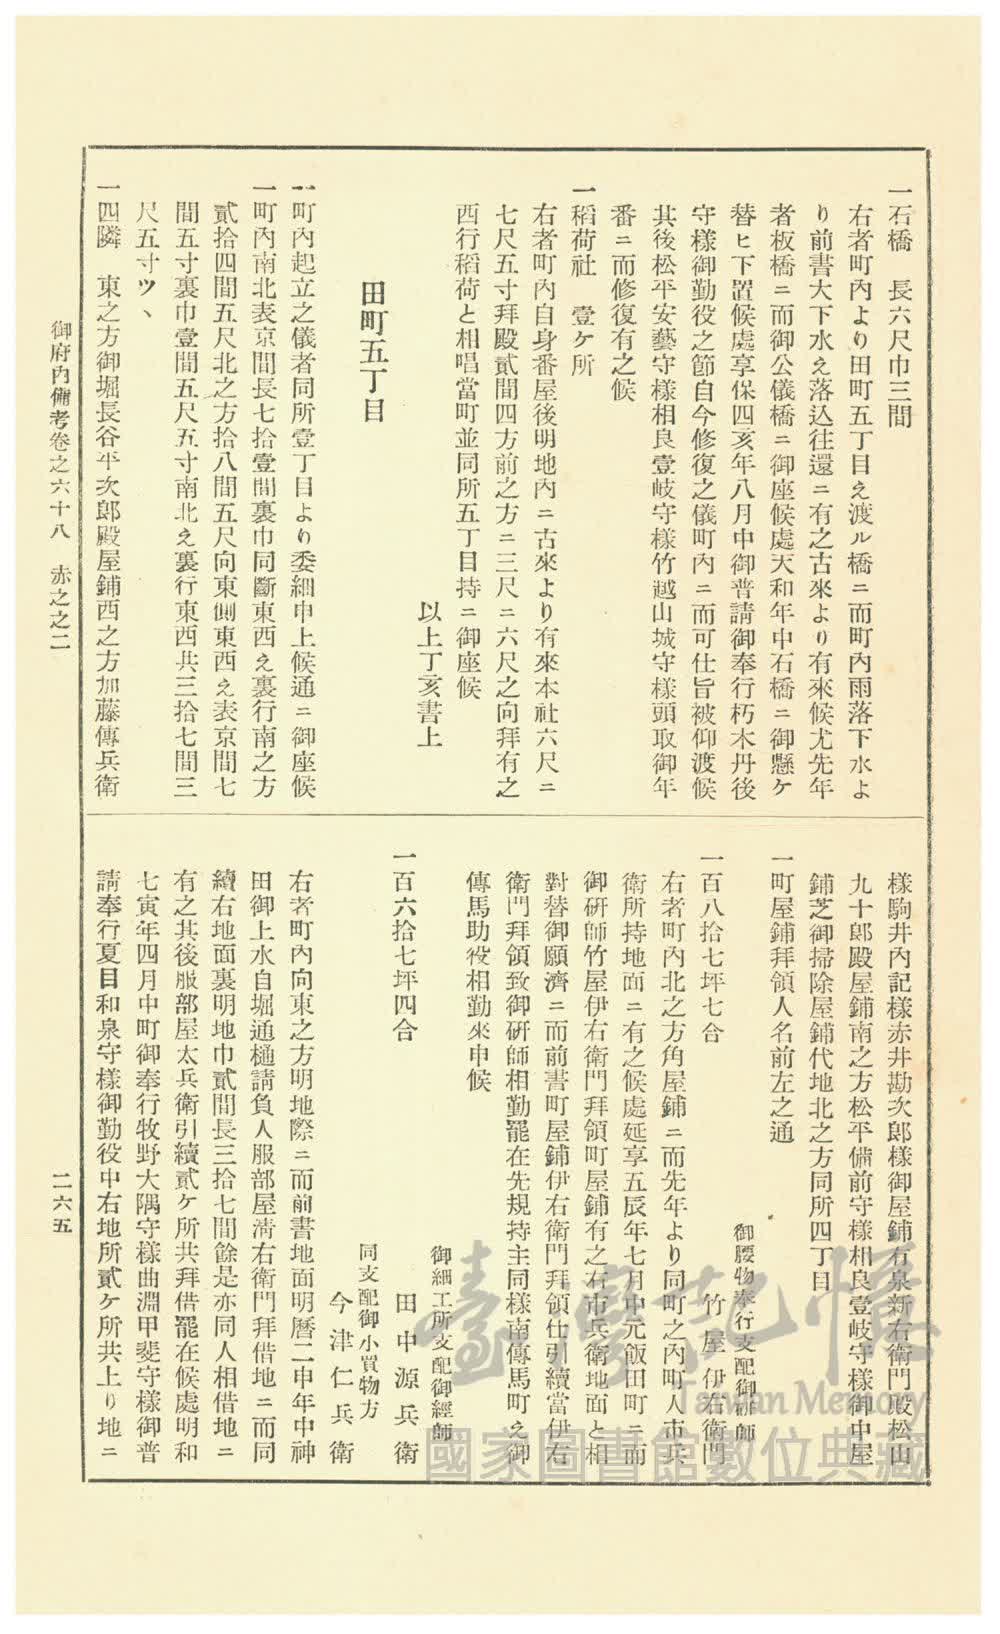 一石橋　長六尺巾三間
右者町內より田町五丁目え渡ル橋ニ而町內雨落下水よ
り前書大下水え落込往還ニ有之古來より有來候尤先年
者板橋ニ而御公儀橋ニ御座候處天和年中石橋ニ御懸ケ
替ヒ下置候處享保四亥年八月中御普請御奉行朽木丹後
守樣御勤役之節自今修復之儀町內ニ而可仕旨被仰渡候
其後松平安藝守樣相良壹岐守樣竹越山城守樣頭取御年
番ニ而修復有之候
一稻荷社　壹ケ所
右者町內自身番屋後明地內ニ古來より有來本社六尺ニ
七尺五寸拜殿貳間四方前之方ニ三尺ニ六尺之向拜有之
西行稻荷と相唱當町並同所五丁目持ニ御座候
以上丁亥書上
田町五丁目
一町內起立之儀者同所壹丁目より委細申上候通ニ御座候
一町內南北表京間長七拾壹間裏巾同斷東西え裏行南之方
貳拾四間五尺北之方拾八間五尺向東側東西え表京間七
間五寸裏巾壹間五尺五寸南北え裏行東西共三拾七間三
尺五寸ツヽ
一四隣　東之方御堀長谷平次郞殿屋鋪西之方加藤傳兵衞
樣駒井內記樣赤井勘次郞樣御屋鋪石泉新右衞門殿松山
九十郞殿屋鋪南之方松平備前守樣相良壹岐守樣御中屋
鋪芝御掃除屋鋪代地北之方同所四丁目
一町屋鋪拜領人名前左之通
御腰物奉行支配御研師
一百八拾七坪七合　竹屋伊右衞門
右者町內北之方角屋鋪ニ而先年より同町之內町人市兵
衞所持地面ニ有之候處延享五辰年七月中元飯田町ニ而
御硏師竹屋伊右衞門拜領町屋鋪有之右市兵衞地面と相
對替御願濟ニ而前書町屋鋪伊右衞門拜領仕引續當伊右
衞門拜領致御硏師相勤罷在先規持主同樣南傳馬町え御
傳馬助役相勤來申候
御細工所支配御經師
一百六拾七坪四合　田中源兵衞
同支配御小買物方
今津仁兵衞
右者町內向東之方明地際ニ而前書地面明曆二申年中神
田御上水自堀通樋請負人服部屋淸右衞門拜借地ニ而同
續右地面裏明地巾貳間長三拾七間餘是亦同人相借地ニ
有之其後服部屋太兵衞引續貳ケ所共拜借罷在候處明和
七寅年四月中町御奉行牧野大隅守樣曲淵甲斐守樣御普
請奉行夏目和泉守樣御勤役中右地所貳ケ所共上り地ニ
御府內備考卷之六十八　赤之之二
二六五
臺灣記憶
Taiwan Memory
國家圖書館數位典藏